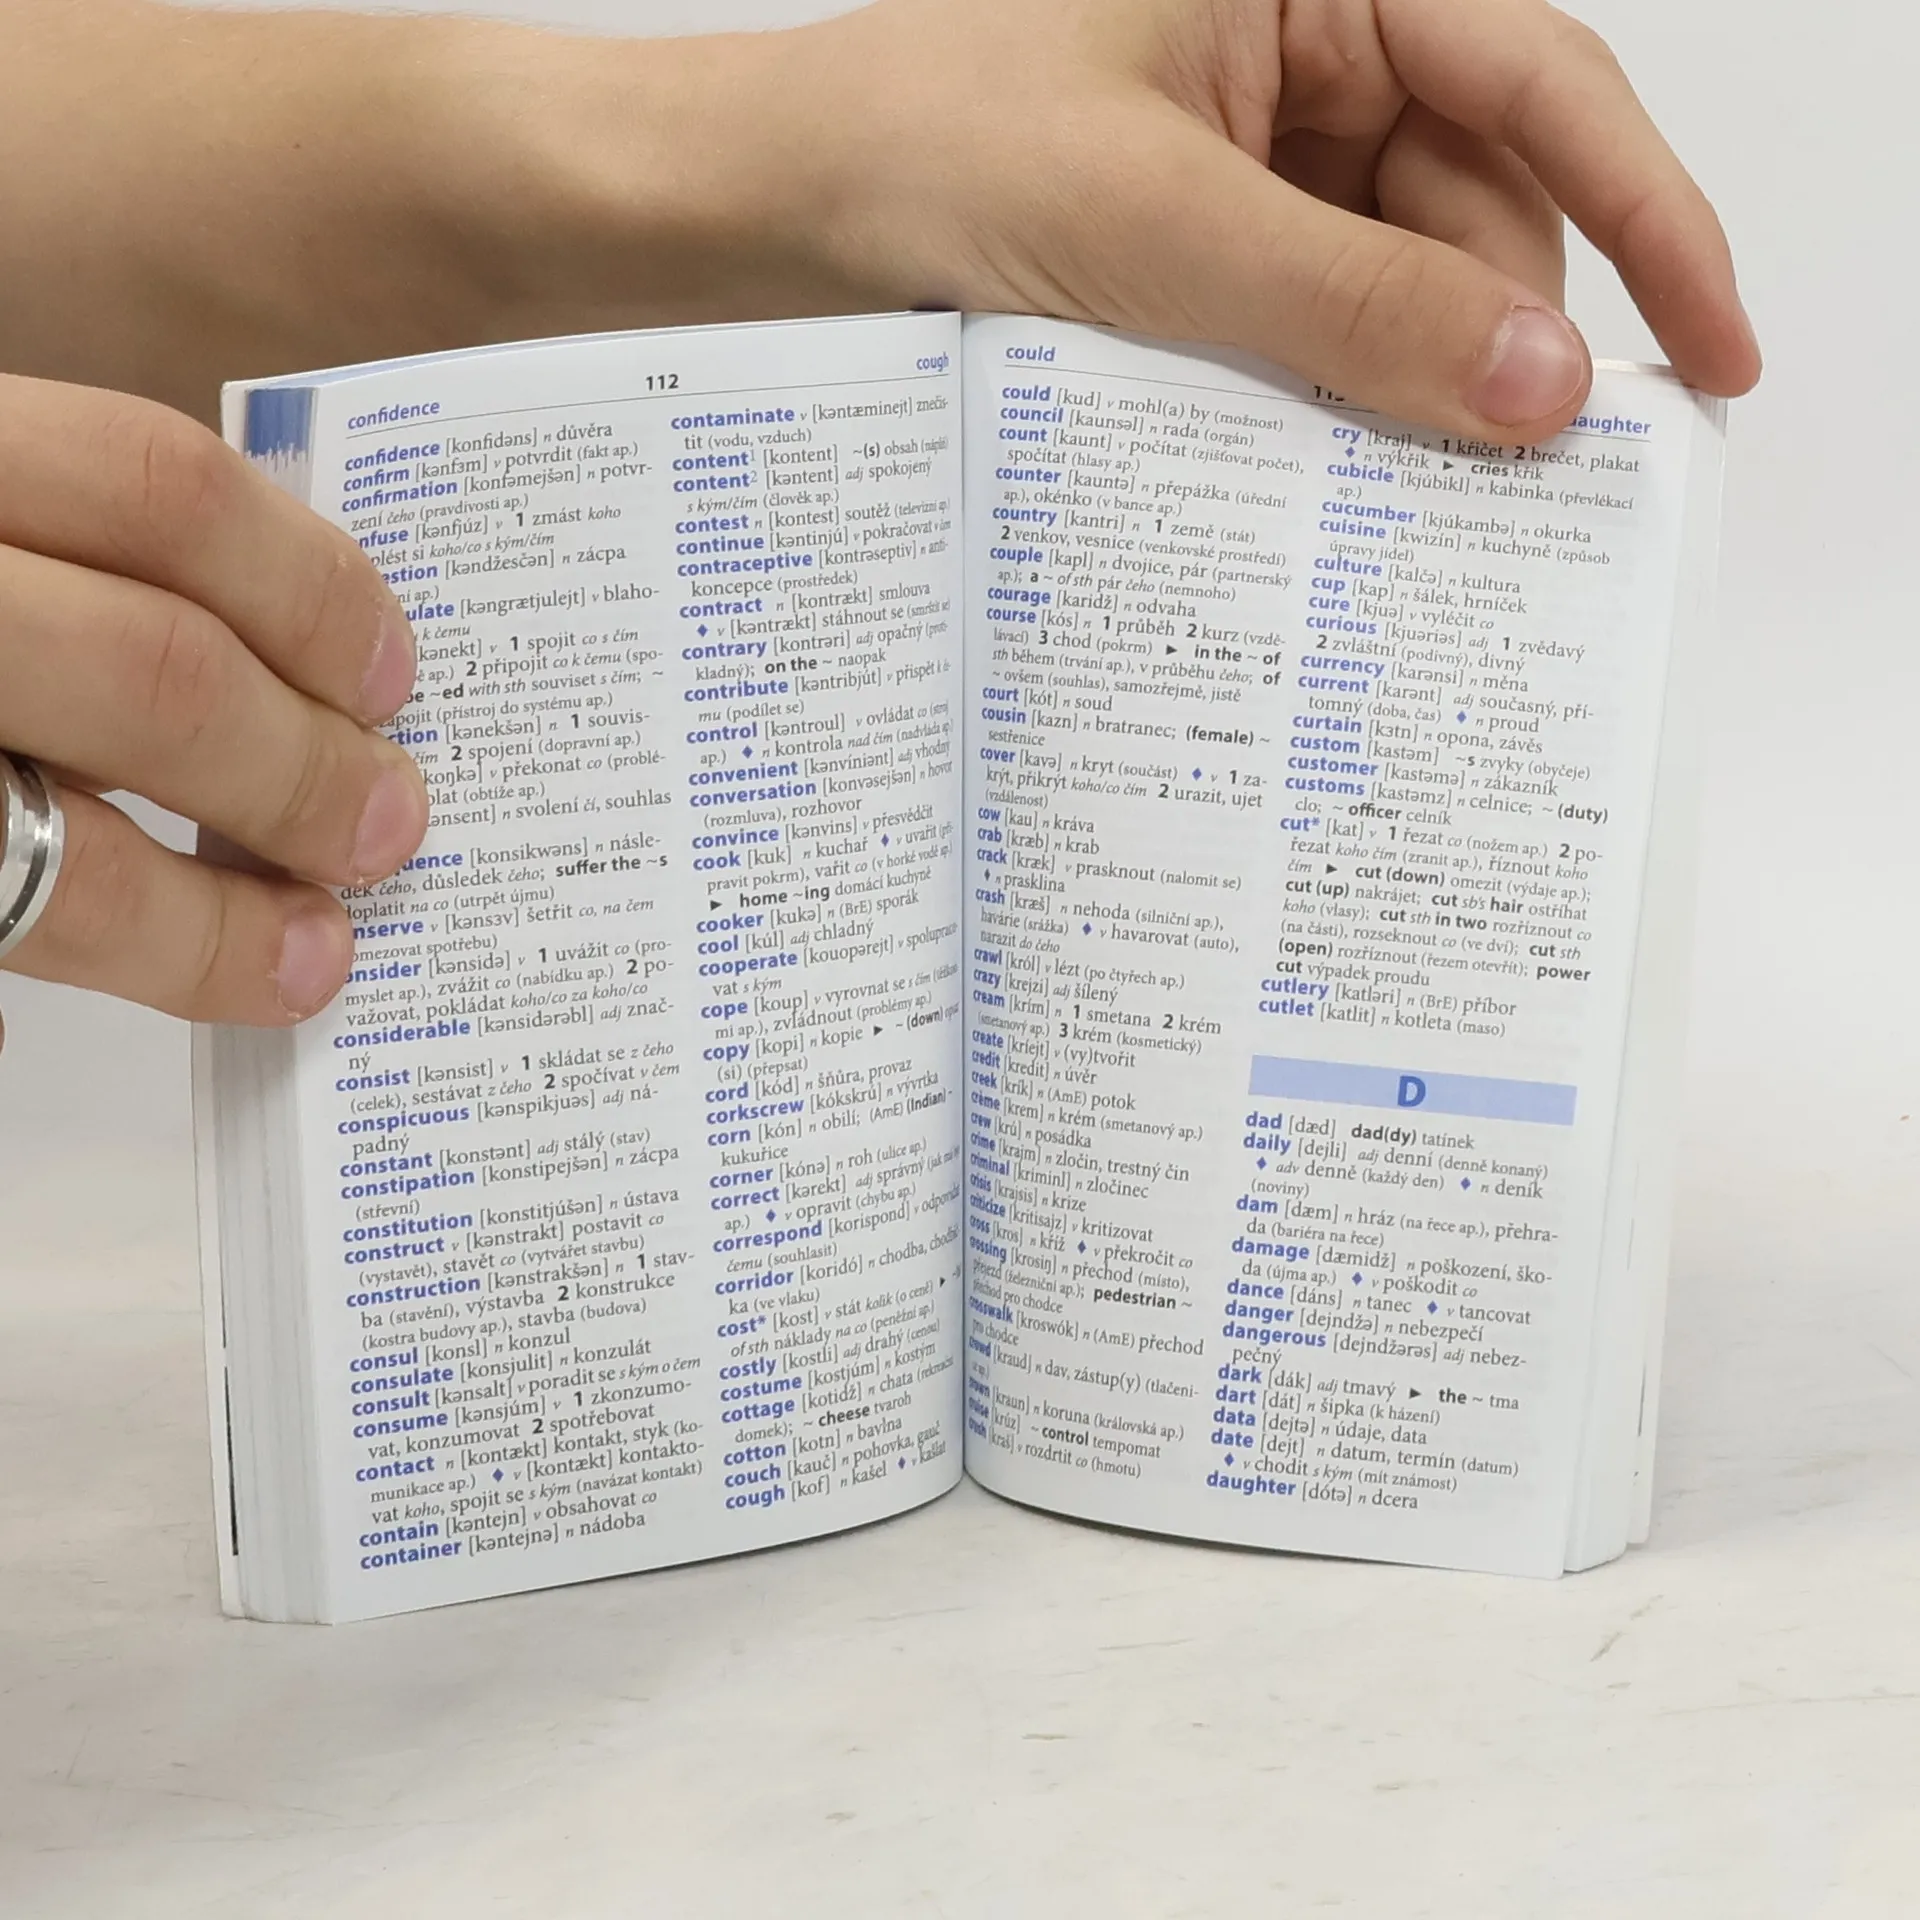 confidence
112
cough
confidence [konfidəns] n důvěra
confirm [kənfɜm] v potvrdit (fakt ap.)
confirmation [konfəmejšən] n potvr-
zení čeho (pravdivosti ap.)
nfuse [kənfjúz] v 1 zmást koho
plést si koho/co s kým/čím
estion [kəndžesčən] n zácpa
ní ap.)
ulate [kəngrætjulejt] v blaho-
k čemu
[kənekt] v 1 spojit co s čím
ap.) 2 připojit co k čemu (spo-
be ~ed with sth souviset s čím; ~
zapojit (přístroj do systému ap.)
ction [kənekšən] n 1 souvis-
čím 2 spojení (dopravní ap.)
[koŋkə] v překonat co (problé-
olat (obtíže ap.)
ənsent] n svolení čí, souhlas
quence [konsikwəns] n násle-
dek čeho, důsledek čeho; suffer the ~s
doplatit na co (utrpět újmu)
nserve v [kənsɜv] šetřit co, na čem
omezovat spotřebu)
onsider [kənsidə] v 1 uvážit co (pro-
myslet ap.), zvážit co (nabídku ap.) 2 po-
važovat, pokládat koho/co za koho/co
considerable [kənsidərəbl] adj znač-
ný
consist [kənsist] v 1 skládat se z čeho
(celek), sestávat z čeho 2 spočívat v čem
conspicuous [kənspikjuəs] adj ná-
padný
constant [konstənt] adj stálý (stav)
constipation [konstipejšən] n zácpa
(střevní)
constitution [konstitjúšən] n ústava
construct v [kənstrakt] postavit co
(vystavět), stavět co (vytvářet stavbu)
construction [kənstrakšən] n 1 stav-
ba (stavění), výstavba 2 konstrukce
(kostra budovy ap.), stavba (budova)
consul [konsl] n konzul
consulate [konsjulit] n konzulát
consult [kənsalt] v poradit se s kým o čem
consume [kənsjúm] v 1 zkonzumo-
vat, konzumovat 2 spotřebovat
contact n [kontækt] kontakt, styk (ko-
munikace ap.) ◆ v [kontækt] kontakto-
vat koho, spojit se s kým (navázat kontakt)
contain [kəntejn] v obsahovat co
container [kəntejnə] n nádoba
contaminate v [kəntæminejt] znečis-
tit (vodu, vzduch)
content¹ [kontent] ~(s) obsah (náplň)
content² [kəntent] adj spokojený
s kým/čím (člověk ap.)
contest n [kontest] soutěž (televizní ap.)
continue [kəntinjú] v pokračovat v čem
contraceptive [kontrəseptiv] n anti-
koncepce (prostředek)
contract n [kontrækt] smlouva
◆ v [kəntrækt] stáhnout se (smrštit se)
contrary [kontrəri] adj opačný (proti-
kladný); on the ~ naopak
contribute [kəntribjút] v přispět k če-
mu (podílet se)
control [kəntroul] v ovládat co (stroj
ap.) ◆ n kontrola nad čím (nadvláda ap.)
convenient [kənvíniənt] adj vhodný
conversation [konvəsejšən] n hovor
(rozmluva), rozhovor
convince [kənvins] v přesvědčit
cook [kuk] n kuchař ◆ v uvařit (při-
pravit pokrm), vařit co (v horké vodě ap.)
► home ~ing domácí kuchyně
cooker [kukə] n (BrE) sporák
cool [kúl] adj chladný
cooperate [kouopərejt] v spolupraco-
vat s kým
cope [koup] v vyrovnat se s čím (těžkost-
mi ap.), zvládnout (problémy ap.)
copy [kopi] n kopie ► ~ (down) opsat
(si) (přepsat)
cord [kód] n šňůra, provaz
corkscrew [kókskrú] n vývrtka
corn [kón] n obilí; (AmE) (Indian) ~
kukuřice
corner [kónə] n roh (ulice ap.)
correct [kərekt] adj správný (jak má být
ap.) ◆ v opravit (chybu ap.)
correspond [korispond] v odpovídat
čemu (souhlasit)
corridor [koridó] n chodba, chodbič-
ka (ve vlaku)
cost* [kost] v stát kolik (o ceně) ►
of sth náklady na co (peněžní ap.)
costly [kostli] adj drahý (cenou)
costume [kostjúm] n kostým
cottage [kotidž] n chata (rekreační
domek); ~ cheese tvaroh
cotton [kotn] n bavlna
couch [kauč] n pohovka, gauč
cough [kof] n kašel ◆ v kašlat
could
daughter
could [kud] v mohl(a) by (možnost)
council [kaunsəl] n rada (orgán)
count [kaunt] v počítat (zjišťovat počet),
spočítat (hlasy ap.)
counter [kauntə] n přepážka (úřední
ap.), okénko (v bance ap.)
country [kantri] n 1 země (stát)
2 venkov, vesnice (venkovské prostředí)
couple [kapl] n dvojice, pár (partnerský
ap.); a ~ of sth pár čeho (nemnoho)
courage [karidž] n odvaha
course [kós] n 1 průběh 2 kurz (vzdě-
lávací) 3 chod (pokrm) ► in the ~ of
sth během (trvání ap.), v průběhu čeho; of
~ ovšem (souhlas), samozřejmě, jistě
court [kót] n soud
cousin [kazn] n bratranec; (female) ~
sestřenice
cover [kavə] n kryt (součást) ◆ v 1 za-
krýt, přikrýt koho/co čím 2 urazit, ujet
(vzdálenost)
cow [kau] n kráva
crab [kræb] n krab
crack [kræk] v prasknout (nalomit se)
◆ n prasklina
crash [kræš] n nehoda (silniční ap.),
havárie (srážka) ◆ v havarovat (auto),
narazit do čeho
crawl [król] v lézt (po čtyřech ap.)
crazy [krejzi] adj šílený
cream [krím] n 1 smetana 2 krém
(smetanový ap.) 3 krém (kosmetický)
create [kriejt] v (vy)tvořit
credit [kredit] n úvěr
creek [krík] n (AmE) potok
crème [krem] n krém (smetanový ap.)
crew [krú] n posádka
crime [krajm] n zločin, trestný čin
criminal [kriminl] n zločinec
crisis [krajsis] n krize
criticize [kritisajz] v kritizovat
cross [kros] n kříž ◆ v překročit co
crossing [krosiŋ] n přechod (místo),
přejezd (železniční ap.); pedestrian ~
přechod pro chodce
crosswalk [kroswók] n (AmE) přechod
pro chodce
crowd [kraud] n dav, zástup(y) (tlačeni-
ce ap.)
crown [kraun] n koruna (královská ap.)
cruise [krúz] ~ control tempomat
crush [kraš] v rozdrtit co (hmotu)
cry [kraj] v 1 křičet 2 brečet, plakat
◆ n výkřik ► cries křik
cubicle [kjúbikl] n kabinka (převlékací
ap.)
cucumber [kjúkambə] n okurka
cuisine [kwizín] n kuchyně (způsob
úpravy jídel)
culture [kalčə] n kultura
cup [kap] n šálek, hrníček
cure [kjuə] v vyléčit co
curious [kjuəriəs] adj 1 zvědavý
2 zvláštní (podivný), divný
currency [karənsi] n měna
current [karənt] adj současný, pří-
tomný (doba, čas) ◆ n proud
curtain [kɜtn] n opona, závěs
custom [kastəm] ~s zvyky (obyčeje)
customer [kastəmə] n zákazník
customs [kastəmz] n celnice; ~ (duty)
clo; ~ officer celník
cut* [kat] v 1 řezat co (nožem ap.) 2 po-
řezat koho čím (zranit ap.), říznout koho
čím ► cut (down) omezit (výdaje ap.);
cut (up) nakrájet; cut sb's hair ostříhat
koho (vlasy); cut sth in two rozříznout co
(na části), rozseknout co (ve dví); cut sth
(open) rozříznout (řezem otevřít); power
cut výpadek proudu
cutlery [katləri] n (BrE) příbor
cutlet [katlit] n kotleta (maso)
D
dad [dæd] dad(dy) tatínek
daily [dejli] adj denní (denně konaný)
◆ adv denně (každý den) ◆ n deník
(noviny)
dam [dæm] n hráz (na řece ap.), přehra-
da (bariéra na řece)
damage [dæmidž] n poškození, ško-
da (újma ap.) ◆ v poškodit co
dance [dáns] n tanec ◆ v tancovat
danger [dejndžə] n nebezpečí
dangerous [dejndžərəs] adj nebez-
pečný
dark [dák] adj tmavý ► the ~ tma
dart [dát] n šipka (k házení)
data [dejtə] n údaje, data
date [dejt] n datum, termín (datum)
◆ v chodit s kým (mít známost)
daughter [dótə] n dcera